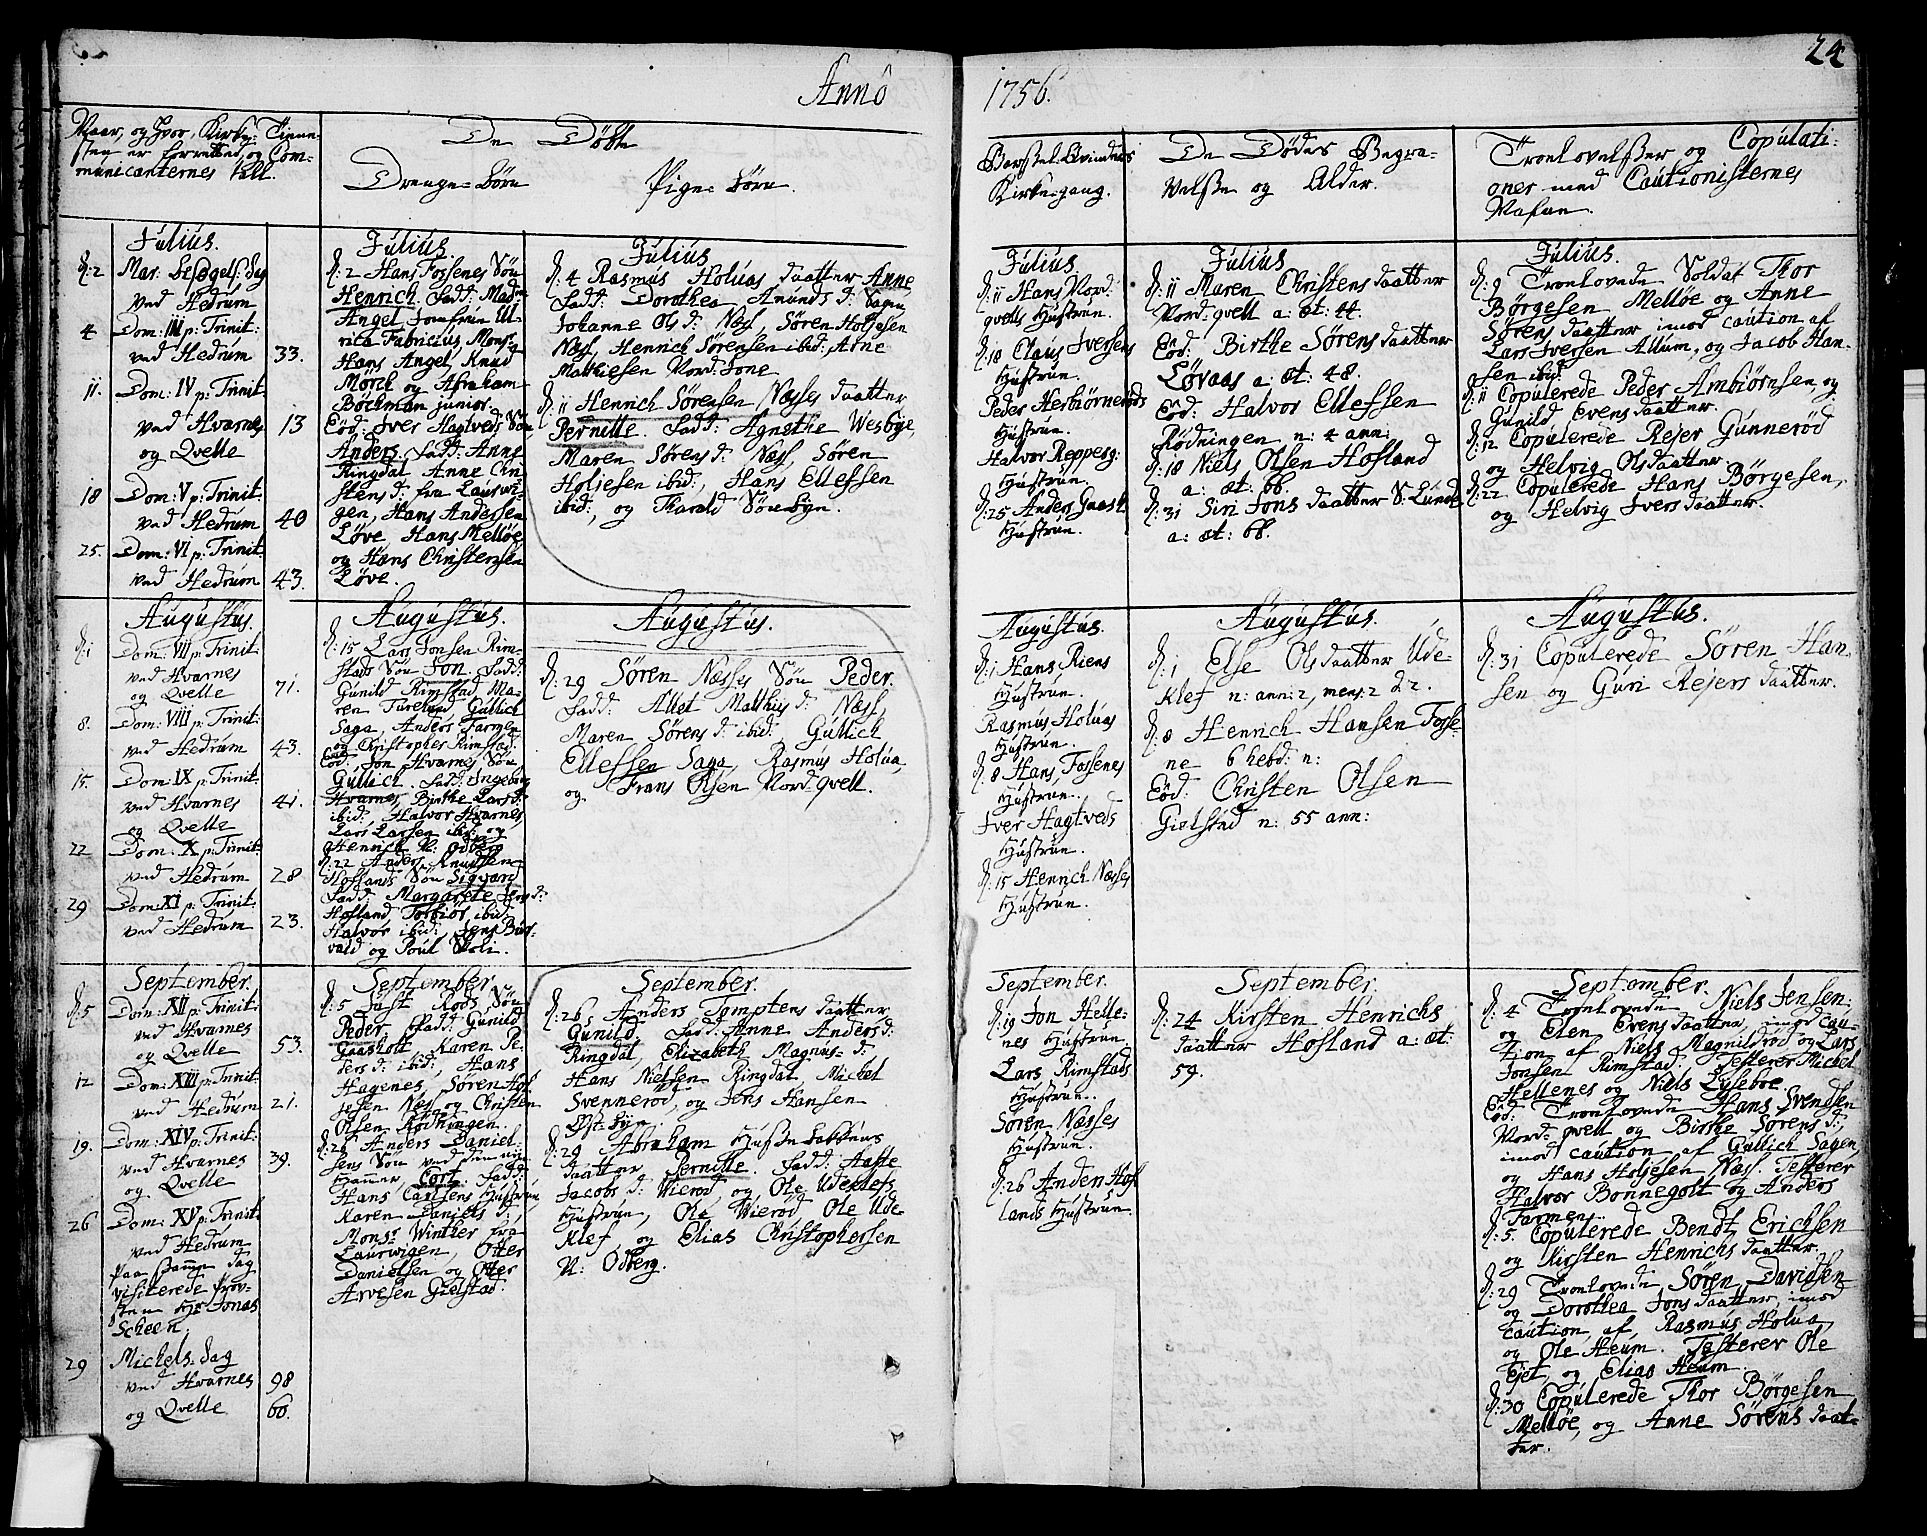 24
Annô 1756.
Naar, og hvor, Kirke-Tiene-
sten er forrettet, og Com-
municanternes tall.
De Döbte
Drenge-börn
Pige-börn.
Barsel-Qvinders
Kirkegang.
De Dödes Begra-
velsse og Alder.
Troelovelsser og Copulati-
oner med Cautionisternes
Nafne.
Julius.
d: 2 Mar. besøgels: dag
ved Hedrum
4 Dom: III p: Trinit:
ved Hedrum 33.
11. Dom: IV p: Trinit:
ved Hvarnes 13
og Qvelle
18 Dom: V p: Trinit:
ved Hedrum 40
25. Dom: VI p: Trinit:
ved Hedrum 43.
Julius.
d: 2 Hans Fossenes Sön
Henrich. Fadd: Mad:
Angel, Jomfrue Ul-
rica Fabricius, Mons:
Hans Angel, Knud
Mörch og Abraham
Böckman junior.
Eod: Iver Hagtveds Sön
Anders. Fadd: Anne
Ringdal, Anne Chri-
stens d: fra Laurvi-
gen, Hans Andersen
Löve, Hans Mellöe,
og Hans Christensen
Löve.
Julius
d: 4 Rasmus Holuas daatter Anne,
Fadd: Dorothea Amunds d: Sagen,
Johanne Ols d: Næss, Sören Holjesen
Næss, Henrich Sörensen ibid: Arne
Matthiesen Nord-Jone
d: 11 Henrich Sörensen Næsses daatter
Pernille. Fadd: Agnethe Wesbye,
Maren Sörens d: Næss, Sören
Holjesen ibid:, Hans Ellefsen
ibid:, og Tharald Sönebye.
Julius.
d: 11 Hans Nord-
qvells Hustrue.
d: 18 Claus Iversens
Hustrue.
Peder Herbiörnerods
Hustrue.
Halvor Repperg:
Hustrue.
d: 25 Anders Gaast:
Hustrue.
Julius
d: 11 Maren Christens daatter
Nord-qvell a: æt: 44.
Eod: Birthe Sörens daatter
Lövaas a: æt: 48.
Eod: Halvor Ellefsen
Rödningen n: 4 ann:
d: 18 Niels Olsen Hofland
a: æt: 66.
d: 31 Siri Jons daatter S: Lunde
a: æt: 66.
Julius.
d: 9 Troelovede Soldat Thor
Börgesen Mellöe og Anne
Sörens daatter imod caution af
Lars Iversen Allum, og Jacob Han-
sen ibid:
d: 11 Copulerede Peder Ambiörnsen, og
Gunild Evens daatter.
d: 12 Copulerede Rejer Gunneröd
og Helvig Ols daatter.
d: 22 Copulerede Hans Börgesen,
og Helvig Ivers daatter.
Augustus.
d: 1 Dom: VII p: Trinit:
ved Hvarnes
og Qvelle 71.
8. Dom: VIII p: Trinit:
ved Hedrum 43.
15. Dom: IX p: Trinit:
ved Hvarnes 41.
og Qvelle
22 Dom: X p: Trinit:
ved Hedrum 28
29 Dom: XI p: Trinit:
ved Hedrum 23.
Augustus.
d: 15 Lars Jonsen Rim-
stads Sön Jon. Fadd:
Gunild Rimstad, Ma-
ren Turelund, Gullich
Saga, Anders Farmen
og Christopher Rimstad.
Eod: Jon Hvarnes Sön
Gullich. Fadd: Ingeborg
Hvarnes, Birthe Lars d:
ibid:, Halvor Hvarnes,
Lars Larsen ibid: og
Henrich N: Odberg
d: 22 Anders Knudsen
Hoflands Sön Sigvard
Fadd: Margarete Jens d:
Hofland, Torbiör ibid:
Halvor ibid:, Jens Bur-
vald og Poul Woli.
Augustus.
d: 29 Sören Næsses Sön Peder.
Fadd: Allet Matthis d: Næss,
Maren Sörens d: ibid: Gullich
Ellefsen Saga, Rasmus Holua,
og Frans Olsen Nord-qvell.
Augustus.
d: 1 Hans Riens
Hustrue.
Rasmus Holuas
Hustrue.
d: 8 Hans Fossenes
Hustrue.
Iver Hagtveds
Hustrue.
d: 15 Henrich Næsses
Hustrue.
Augustus.
d: 1 Else Ols daatter Ude-
Klef n: ann: 2, mens: 2 d: 2.
d: 8 Henrich Hansen Fosse-
ne 6 hebd: n:
Eod: Christen Olsen
Gielstad n: 55 ann:
Augustus.
d: 31 Copulerede Sören Han-
sen og Guri Rejers daatter.
September.
d: 5 Dom: XII p: Trinit:
ved Hvarnes
og Qvelle 53.
12 Dom: XIII p: Trinit:
ved Hedrum 21.
19. Dom: XIV p: Trinit:
ved Hvarnes 39.
og Qvelle
26 Dom: XV p: Trinit:
ved Hedrum
paa samme dag
visiterede Prov-
sten Hr Jonas
Scheen.
29 Michels-dag
ved Hvarnes 98
og Qvelle 60.
September.
d: 5 Just Röds Sön
Peder. Fadd: Gunild
Graaholt, Karen Pe-
ders d: ibid:, Hans
Hagenes, Sören Hol-
jesen Næss og Christen
Olsen Rödningen.
d: 26 Anders Daniel-
sens Sön ved den nye
Hammer Cort. Fadd:
Hans Carlsens Hustrue,
Karen Daniels d:,
Monsr Winther fra
Laurwigen, Otter
Danielsen og Otter
Arvesen Gielstad.
September.
d: 26 Anders Tomptens daatter
Gunild. Fadd: Anne Anders d:
Ringdal, Elizabeth Magnus- d:
Hans Nielsen Ringdal, Michel
Svenneröd, og Jens Hansen
Öst-bye.
d: 29 Abraham Husse-bakkens
daatter Pernille. Fadd: Aaste
Jacobs d: Wieröd, og Ole Udeklefs
Hustrue, Ole Wieröd Ole Ude-
Klef, og Elias Christophersen
N: Odberg.
September.
d: 19 Jon Helle-
nes Hustrue.
Lars Rimstads
Hustrue.
Sören Næsses
Hustrue.
d: 26 Anders Hof-
lands Hustrue.
September.
d: 24 Kirsten Henrichs
daatter Hofland a: æt:
59.
September.
d: 4 Troelovede Niels Jensen
og Elen Evens daatter, imod cau-
tion af Niels Magnildröd og Lars
Jonsen Rimstad. Testerer Michel
Hellenes og Niels Lyseboe.
Eod: Troelovede Hans Svendsen
Nord-qvell og Birthe Sörens d:,
imod caution af Gullich Sagen,
og Hans Holjesen Næss. Testerer
Halvor Bonnegolt og Anders
Farmen.
d: 5. Copulerede Bendt Erichsen
og Kirsten Henrichs daatter.
d: 29 Troelovede Sören Davidsen
og Dorothea Jons daatter, imod
caution af Rasmus Holua,
og Ole Heum. Testerer Ole
Ejet, og Elias Heum.
d: 30 Copulerede Thor Börgesen
Mellöe, og Anne Sörens daat-
ter.